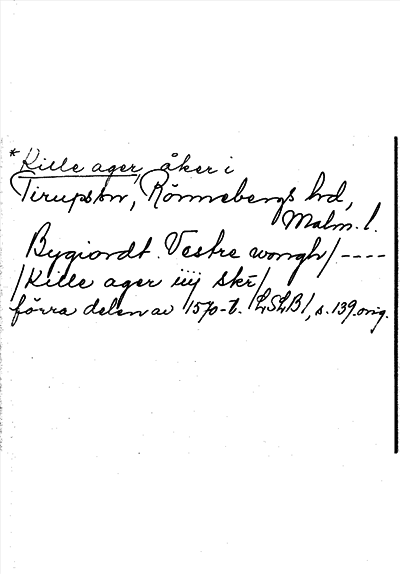 *Kille ager, åker i
Tirups sn, Rönnebergs hd,
Malm. l.
Bygiordt. Vestre wongh/----
/Kille ager iiij skr/
förra delen av 1570-t. /LSLB/, s. 139 orig.